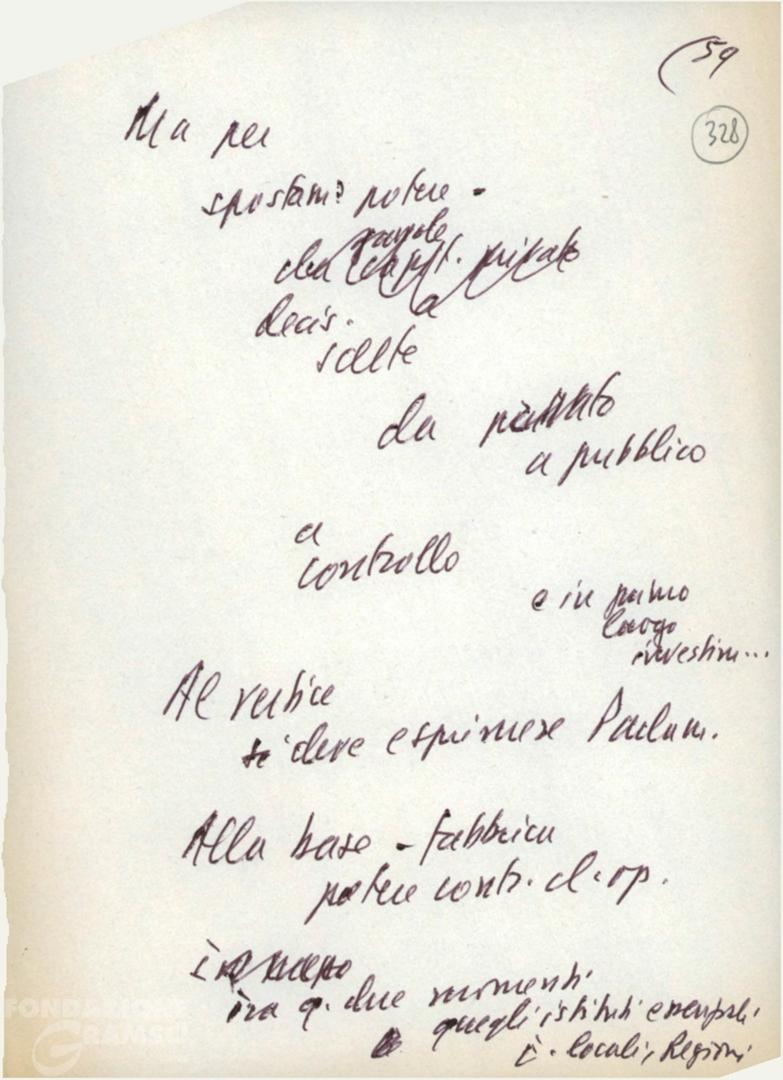 (59
328
Ma per
spostam? potere -
gruppo
da capit. privato
decis. a
scelte
da privato
a pubblico
a
controllo
e in primo
luogo
investim...
Al vertice
si deve esprimere Parlam.
Alla base - fabbrica
potere contr. cl. op.
tra q. due momenti
quegli istituti
E. locali, Regioni
FONDAZIONE
GRAMSCI